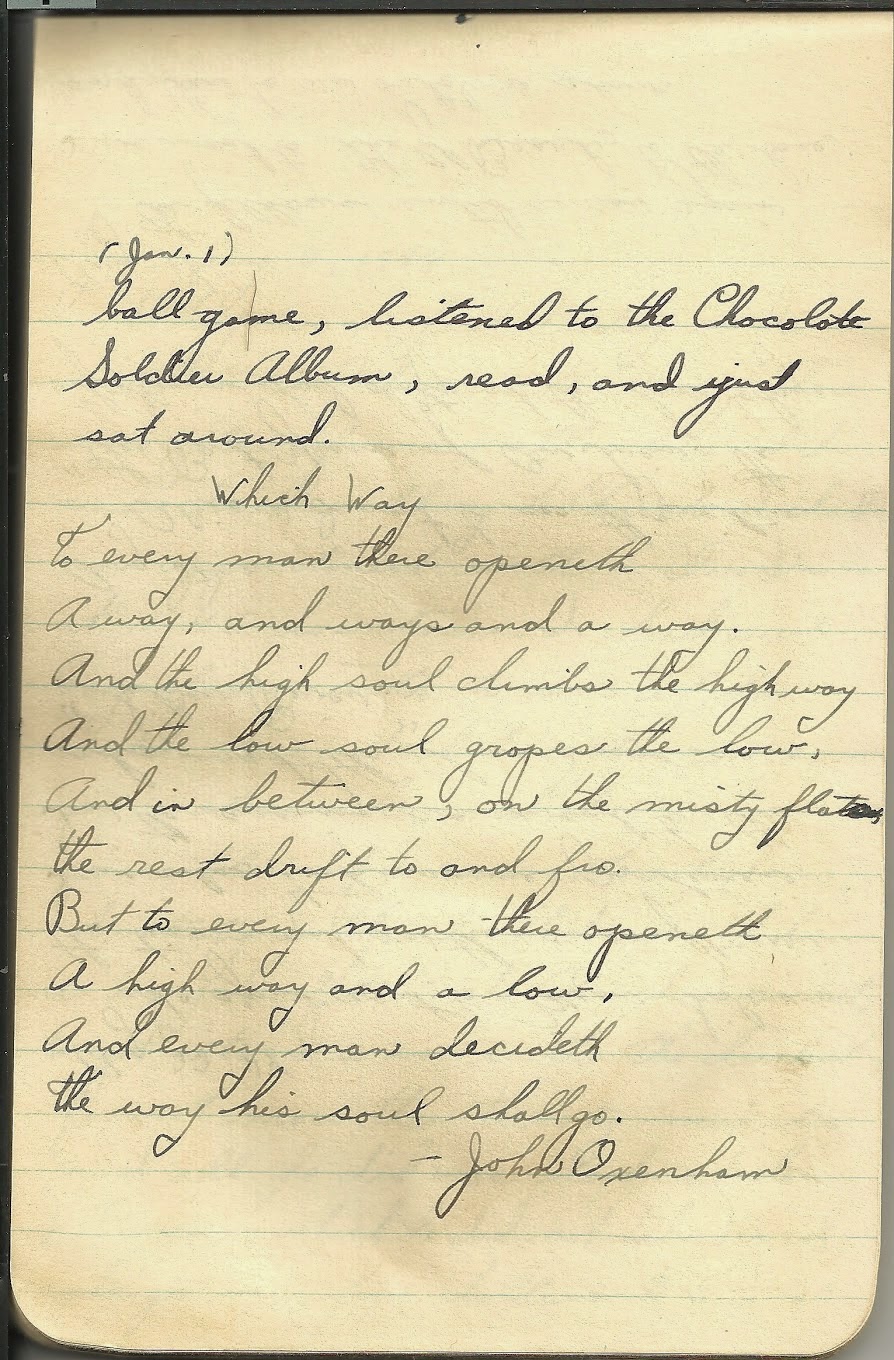 (Jan. 1)
ball game, listened to the Chocolate
Soldier Album, read, and just
sat around.
Which Way
To every man there openeth
A way, and ways and a way.
And the high soul climbs the highway
And the low soul gropes the low,
And in between, on the misty flats,
the rest drift to and fro.
But to every man there openeth
A high way and a low,
And every man decideth
the way his soul shall go.
- John Oxenham